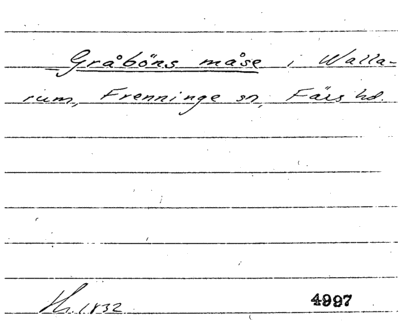 Gråböns måse i Walla-
rum, Frenninge sn, Färs hd.
1832
4997